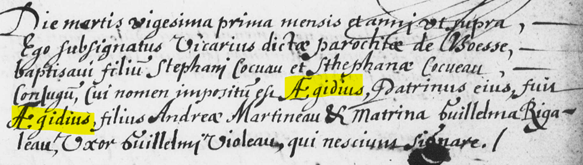 Die martis vigesima prima mensis et anni vt supra,
Ego subsignatus Vicarius dictæ parochiæ de Boesse,
baptisaui filiu Stephani Cocuau et Sthephanæ Cocueau
Conjugu, Cui nomen impositu est Ægidius, Patrinus eius, fuit
Ægidius, filius Andreæ Martineau & Matrina Guillelma Riga-
leau, Vxor Guillelmi Violeau, qui nesciunt signare. /